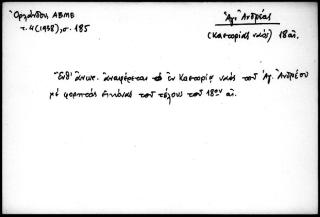 Ὀρλάνδου, ΑΒΜΕ
τ. 4 (1938), σ. 185
Ἁγ. Ἀνδρέας
(Καστοριάς ναός) 18 αἰ.
"Ἐνθ' ἄνωτ. ἀναφέρεται ἐν Καστορίᾳ ναός τοῦ Ἁγ. Ἀνδρέου
μέ φορητάς εἰκόνας τοῦ τέλους τοῦ 18ου αἰ.